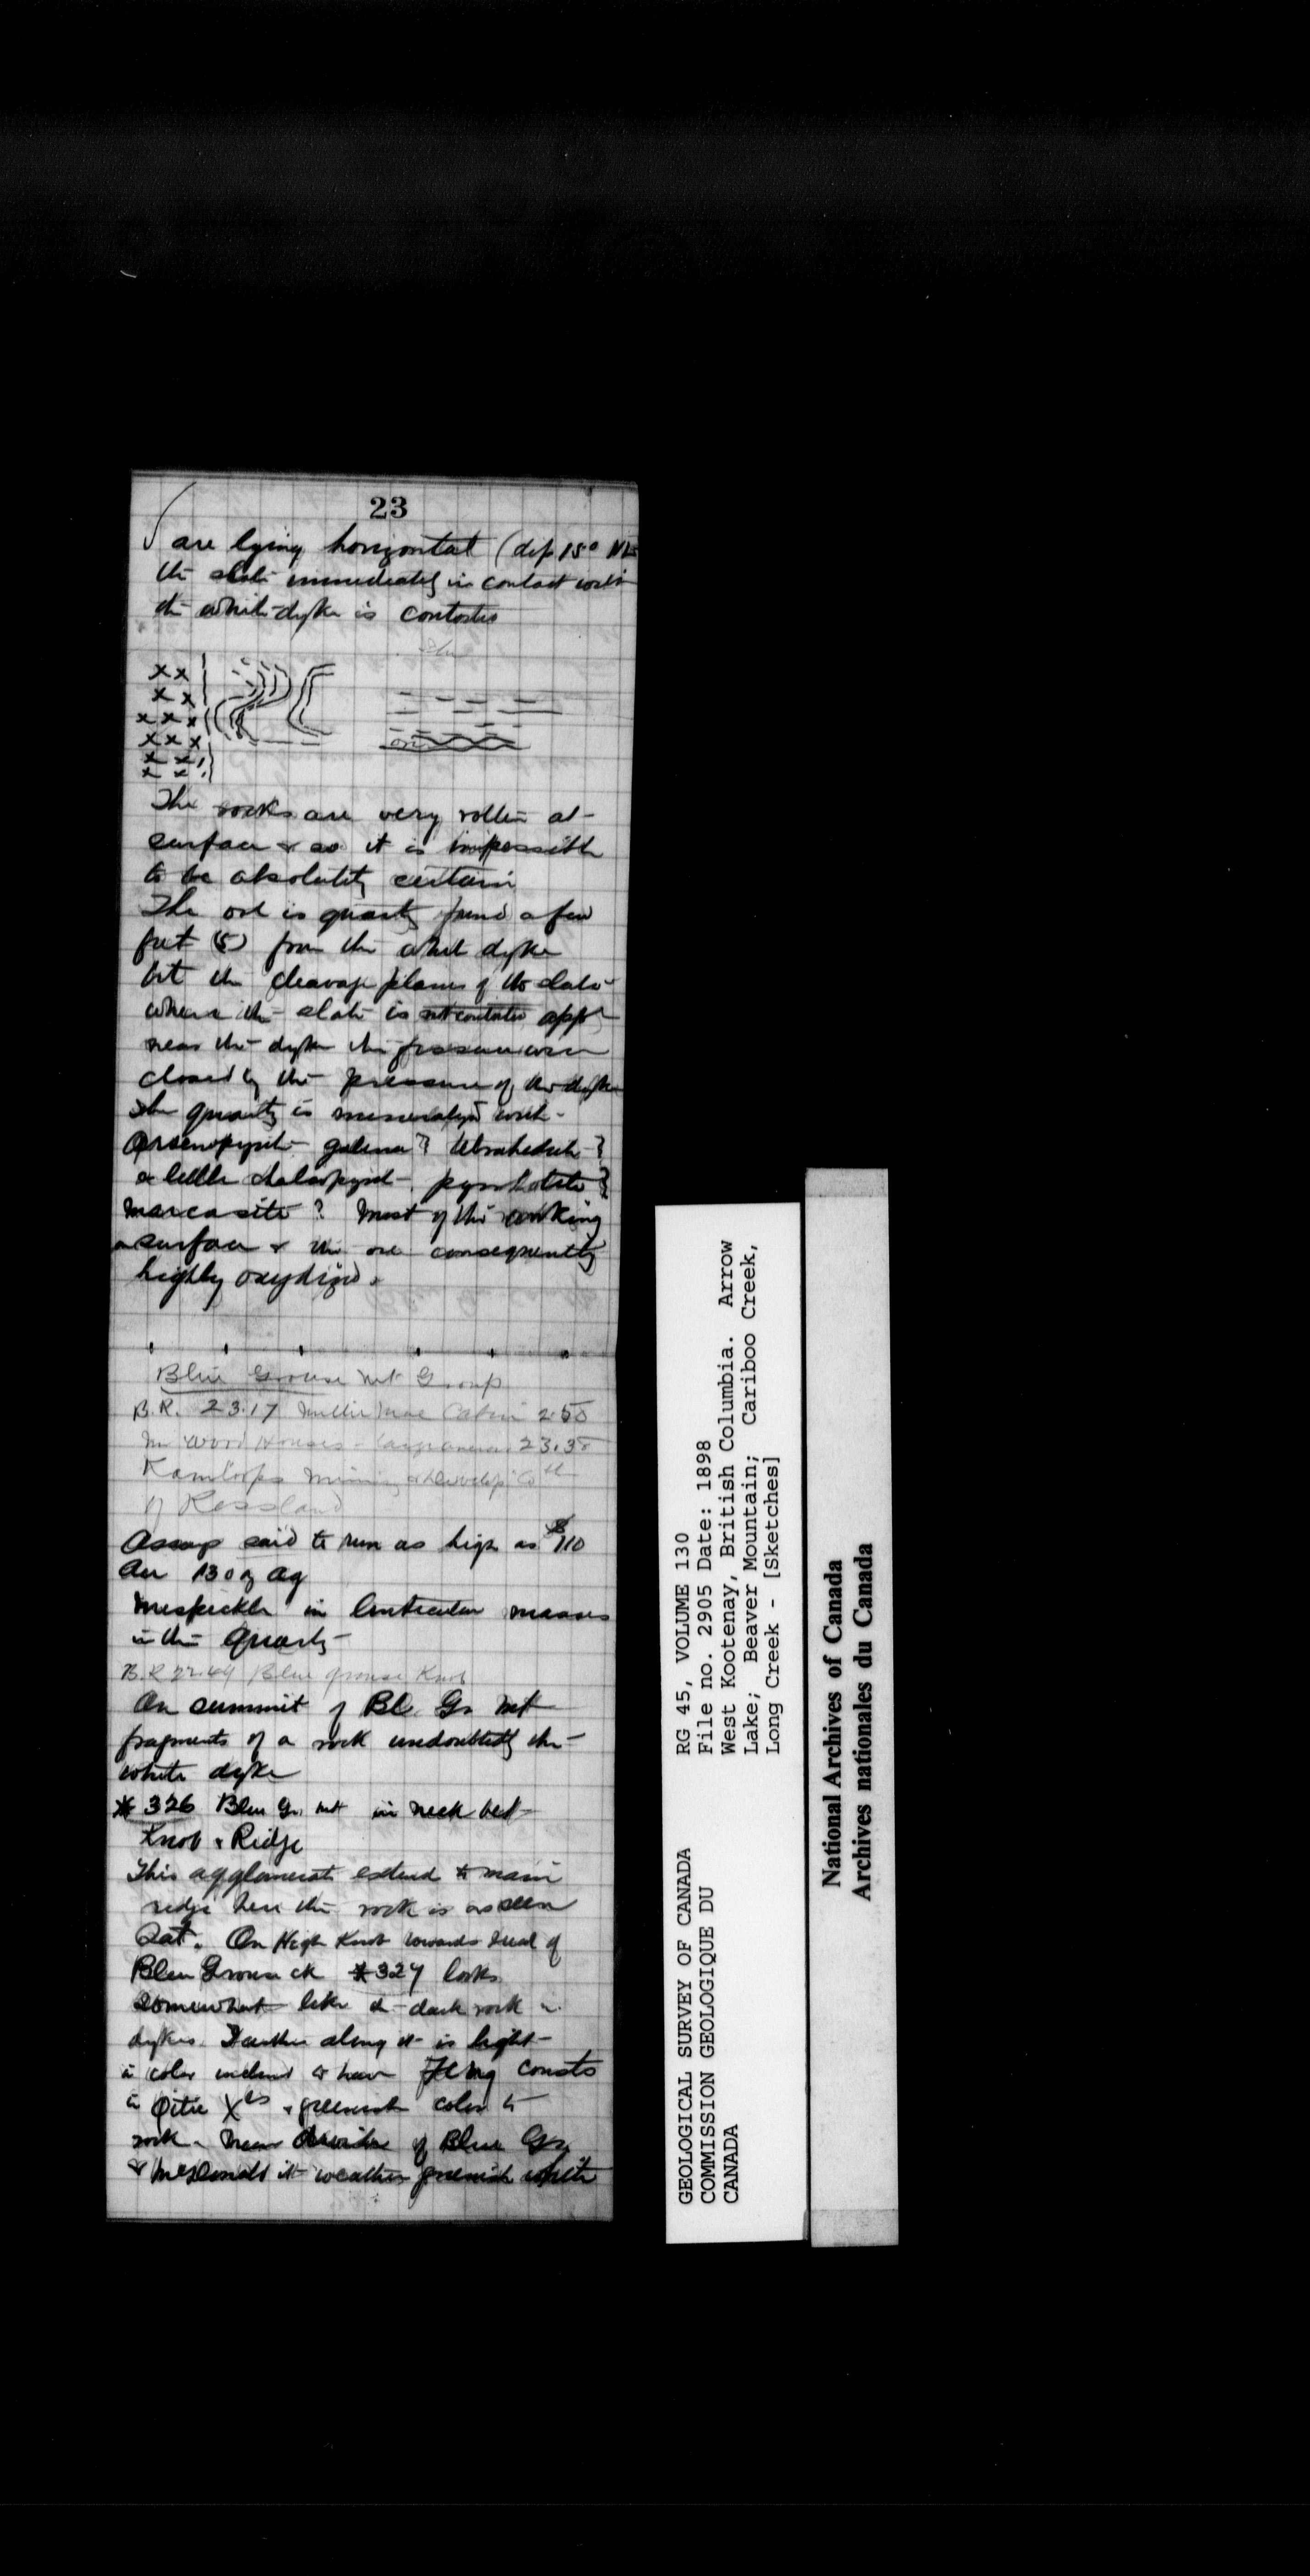 23
are lying horizontal (dip 15° N
the slate immediately in contact with
the white dyke is
x x
x x
x x x
x x x
x x
x x
The rocks are very rotten at
surface & so it is impossible
to be absolutely certain
The ore is quartz found a few
feet (5) from the white dyke
bet the cleavage planes of the slate
where the slate is app
near the dyke the
closed by the pressure of the dyke
The quartz is mineralized with
Arsenopyrite galena? tetrahedrite?
a little chalcopyrite pyrrhotite?
marcasite? Most of the working
on surface & the ore consequently
highly oxydized.
Blue Grouse Mt Group
B.R. 23.17 Millie Mac Cabin 2.50
23.35
Kamloops Mining & Develop Co
of Rossland
Assays said to run as high as $110
Au 130 oz Ag
Mispickle in lenticular masses
in the quartz
B.R 22.49 Blue grouse Knob
On summit of Bl Gr Mt
fragments of a rock undoubtedly the
white dyke
* 326 Blue Gr. Mt in neck bet
Knob & Ridge
This agglomerate extend to main
ridge here the rock is as seen
Sat. On High Knob towards head of
Blue Grouse Ck *327 looks
somewhat like the dark rock in
dykes. Further along it is light
in color
& greenish color to
rock. Near divide of Blue Gr
& McDonald it weathers greenish white
GEOLOGICAL SURVEY OF CANADA
COMMISSION GEOLOGIQUE DU
CANADA
RG 45, VOLUME 130
File no. 2905 Date: 1898
West Kootenay, British Columbia. Arrow
Lake; Beaver Mountain; Cariboo Creek,
Long Creek - [Sketches]
National Archives of Canada
Archives nationales du Canada